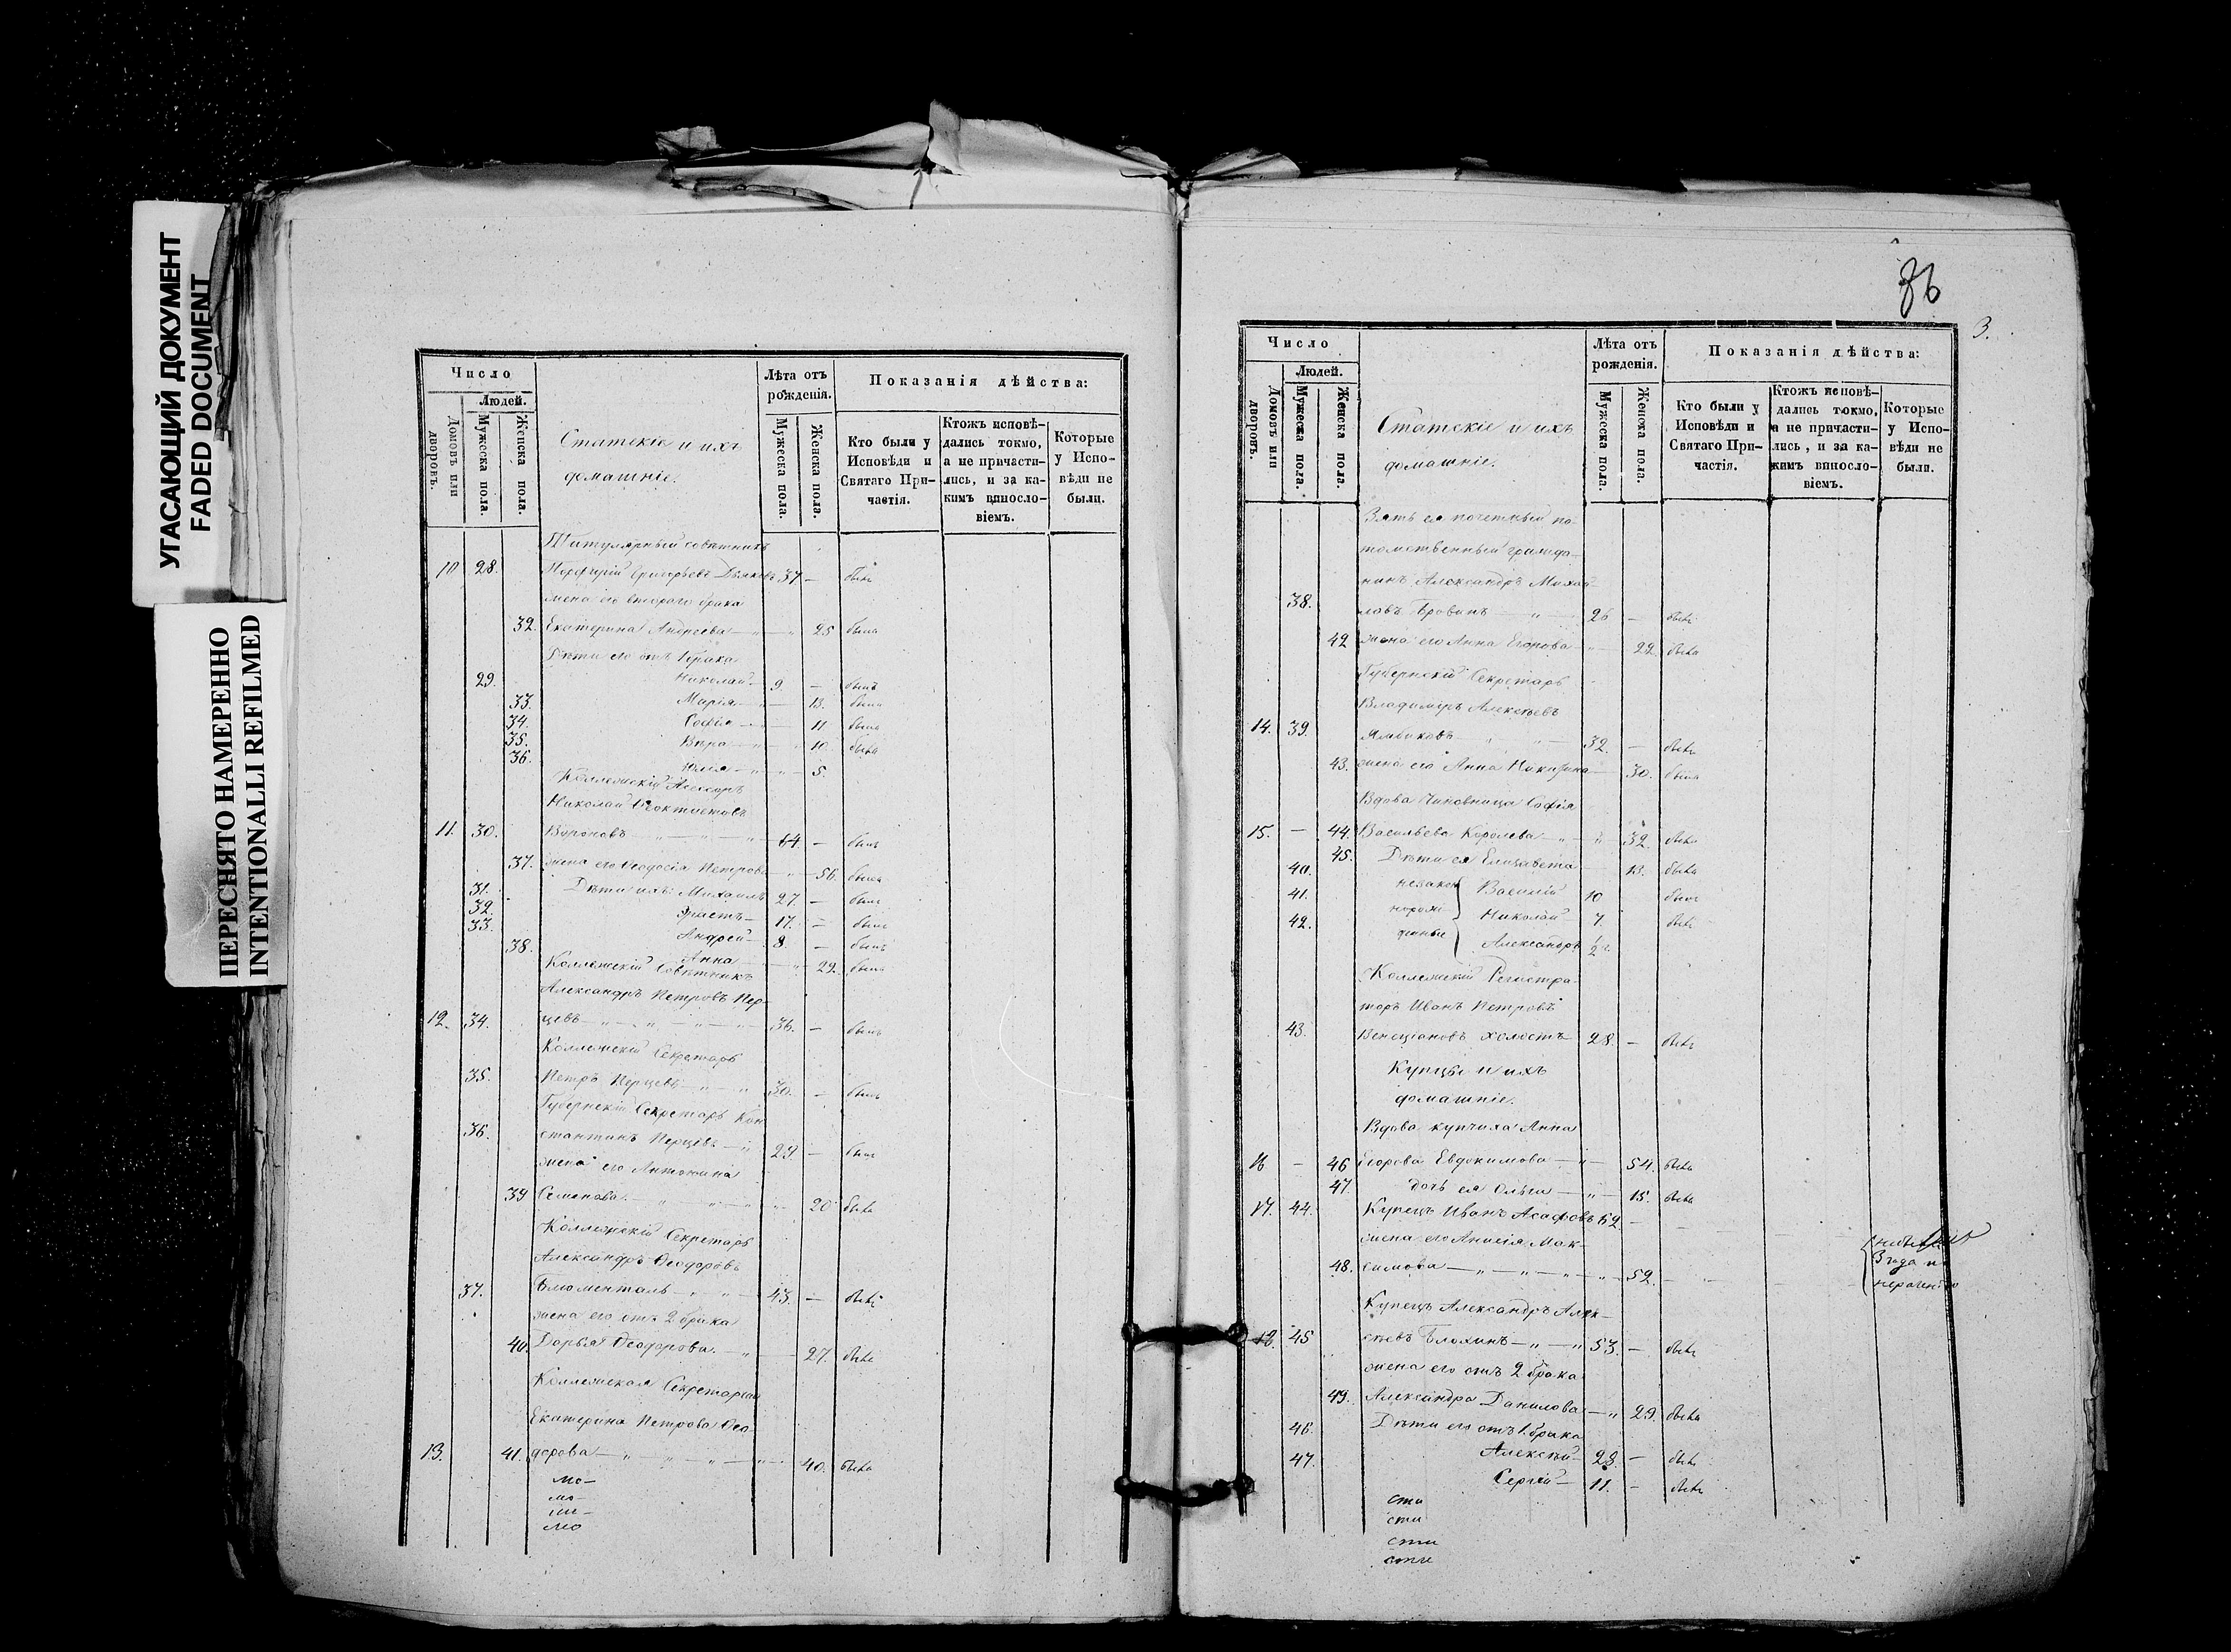 УГАСАЮЩИЙ ДОКУМЕНТ
FADED DOCUMENT
ПЕРЕСНЯТО НАМЕРЕННО
INTENTIONALLI REFILMED
Число
Людей.
Домовъ или дворовъ.
Мужеска пола.
Женска пола.
Статскіе и ихъ
домашніе.
Лѣта отъ рожденія.
Мужеска пола.
Женска пола.
Показанія дѣйства:
Кто были у Исповѣди и Святаго При-частія.
Ктожъ исповѣ-дались токмо, а не причасти-лись, и за ка-кимъ винослo-віемъ.
Которые у Испо-вѣди не были.
Титулярный совѣтникъ
10 28. Порфирій Григорьевъ Дьяковъ 37 — былъ
жена его втораго брака
32. Екатерина Андреева — „ — „ 25 была
Дѣти его отъ 1 брака
29. Николай — 9. — былъ
33. Марія — „ — 13. была
34. Софія — — 11 была
35. Вѣра — „ — 10. была
36. Юлія — „ — „ — 5.
Коллежскій Ассесоръ
Николай Ѳеоктистовъ
11. 30. Вороновъ — „ — „ — „ — 64. — былъ
37. жена его Ѳеодосія Петрова — „ — 56. была
31. Дѣти ихъ: Михаилъ 27. — былъ
32. Эрастъ — 17. — былъ
33. Андрей — 8. — былъ
38. Анна — „ 22. была
Коллежскій Совѣтникъ
Александръ Петровъ Пер-
12. 34. цевъ — „ — „ — „ — 36. — былъ
Коллежскій Секретарь
35. Петръ Перцевъ — „ — „ 30. — былъ
Губернскій Секретарь Кон
36. стантинъ Перцевъ — „ 29. — былъ
жена его Антонина
39 Семенова — „ — „ — „ — 20 была
Коллежскій Секретарь
Александръ Ѳеодоровъ
37. Блюменталь — „ — „ — 43. — былъ
жена его отъ 2 брака
40. Дарья Ѳеодорова. — „ — 27. была
Коллежская Секретарша
Екатерина Петрова Ѳео
13. 41. дорова — „ — „ — „ — „ — 40. была
мо-
мо-
мо
86
3.
Число
Людей.
Домовъ или дворовъ.
Мужеска пола.
Женска пола.
Статскіе и ихъ
домашніе.
Лѣта отъ рожденія.
Мужеска пола.
Женска пола.
Показанія дѣйства:
Кто были у Исповѣди и Святаго При-частія.
Ктожъ исповѣ-дались токмо, а не причасти-лись, и за ка-кимъ винослo-віемъ.
Которые у Испо-вѣди не были.
Зять ея почетный по-
томственный гражда-
нинъ Александръ Михай
38. ловъ Бровинъ — „ — 26 — былъ
42 жена его Анна Егорова — „ — 22. была
Губернскій Секретарь
Владиміръ Алексѣевъ
14. 39. — „ — „ — 32. — былъ
43. жена его Анна — 30. была
Вдова Чиновница Софія
15. — 44. Васильева Королева — „ — „ 32. была
45. Дѣти ея Елизавета — 13. была
40. незакон Василій 10 былъ
41. норож Николай — 7. былъ
42. денные Александръ ½ г.
Коллежскій Регистра-
торъ Иванъ Петровъ
43. холостъ — 28. — былъ
Купцы и ихъ
домашніе.
Вдова купчиха Анна
16 — 46 Егорова Евдокимова — „ — 54. была
47. дочь ея Ольга — „ — 15. была
17. 44. Купецъ Иванъ Асафовъ 62 —
жена его Анисія Мак-
48. симова — „ — „ — „ — „ — 52. —
3 года
Купецъ Александръ Алек-
18. 45 сѣевъ Блохинъ — „ — „ 53. — былъ
жена его отъ 2 брака
49. Александра Данилова — „ 29. была
46. Дѣти его отъ 1 брака
47. Алексѣй — 23. — былъ
Сергій — 11. — былъ
сти
сти
сти
сти